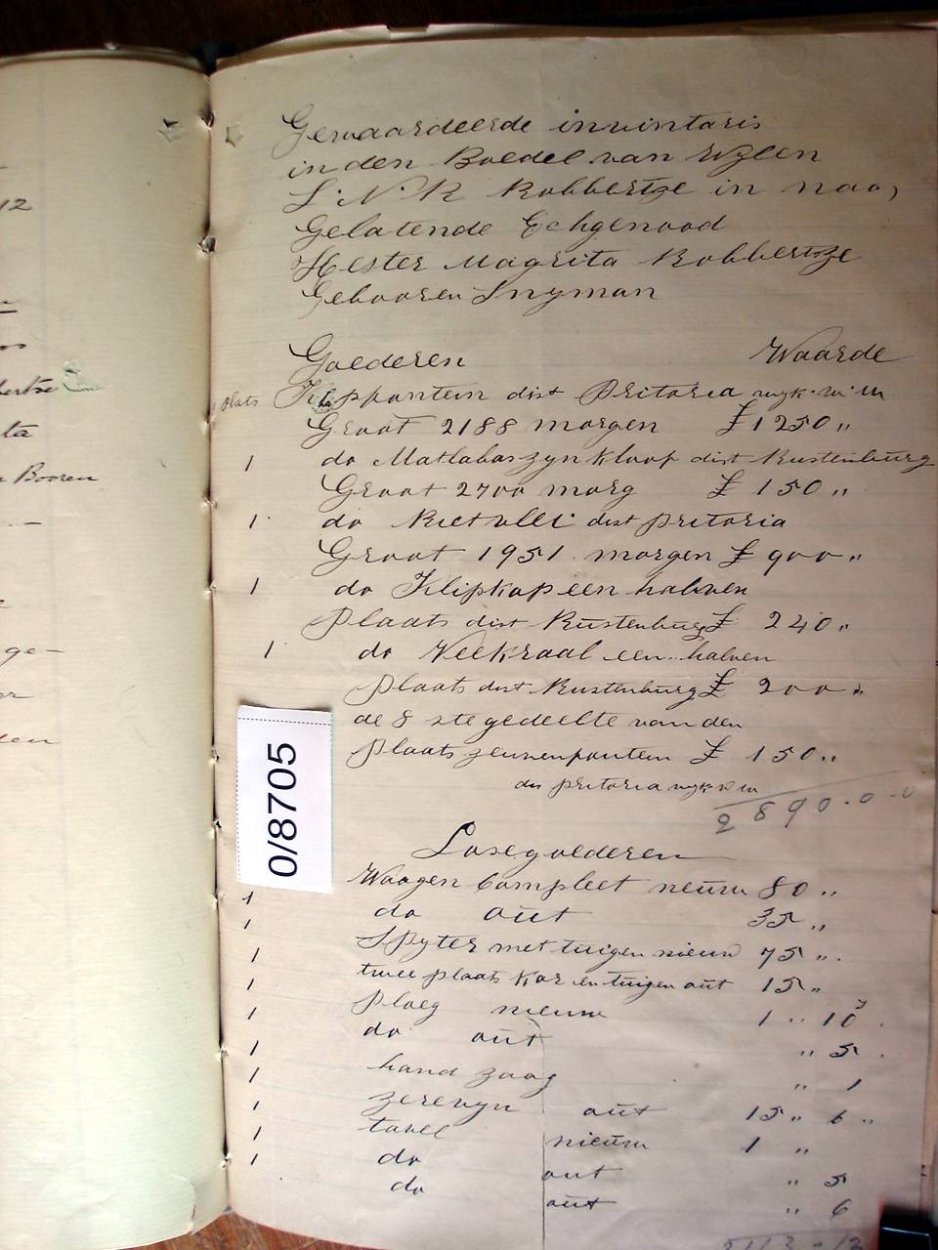 12
bertse
ta
Booren
ge-
den
Gewaardeerde inventaris
in den Boedel van wijlen
L. N. R Robbertze in naa,
Gelatende Echgenood
Hester Magrita Robbertze
Gebooren Snyman
Goederen Waarde
plats ppontein dist Pritoria
Groot 2188 morgen £1250 "
1 do Matlabas zyn kloof dist Rustenburg
Groot 2700 morg £ 150 "
1 do Rietvlli dist pritoria
Groot 1951 morgen £ 900 "
1 do Klipkop een halven
Plaats dist Rustenburg £ 240 "
1 do Veekraal een halven
plaats dist Rustenburg £ 200 "
de 8 ste gedeelte van den
plaats zeuvenpontein £ 150 "
dis pritoria
2890-0-0
0/8705
Losegoederen
1 Waagen Compleet nieuw 80 "
1 do out 35 "
1 Spyter met tuigen nieuw 75 "
1 twee plaats kar en tuigen out 15 "
1 Ploeg nieuw 1 " 10
do out " 5
1 hand zaag " 1
1 out 15 " 6 "
1 tavel nieuw 1 "
1 do out " 5
1 do out " 6